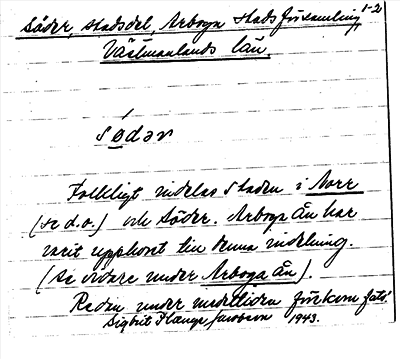 Söder, stadsdel, Arboga stadsförsamling 1-2
Västmanlands län
södәr
Folkligt indelas staden i Norr
(se d.o.) och Söder. Arboga Ån har
varit upphovet till denna indelning.
(Se vidare under Arboga ån).
Redan under medeltiden förekom
Sigbrit Plænge Jacobson 1943.